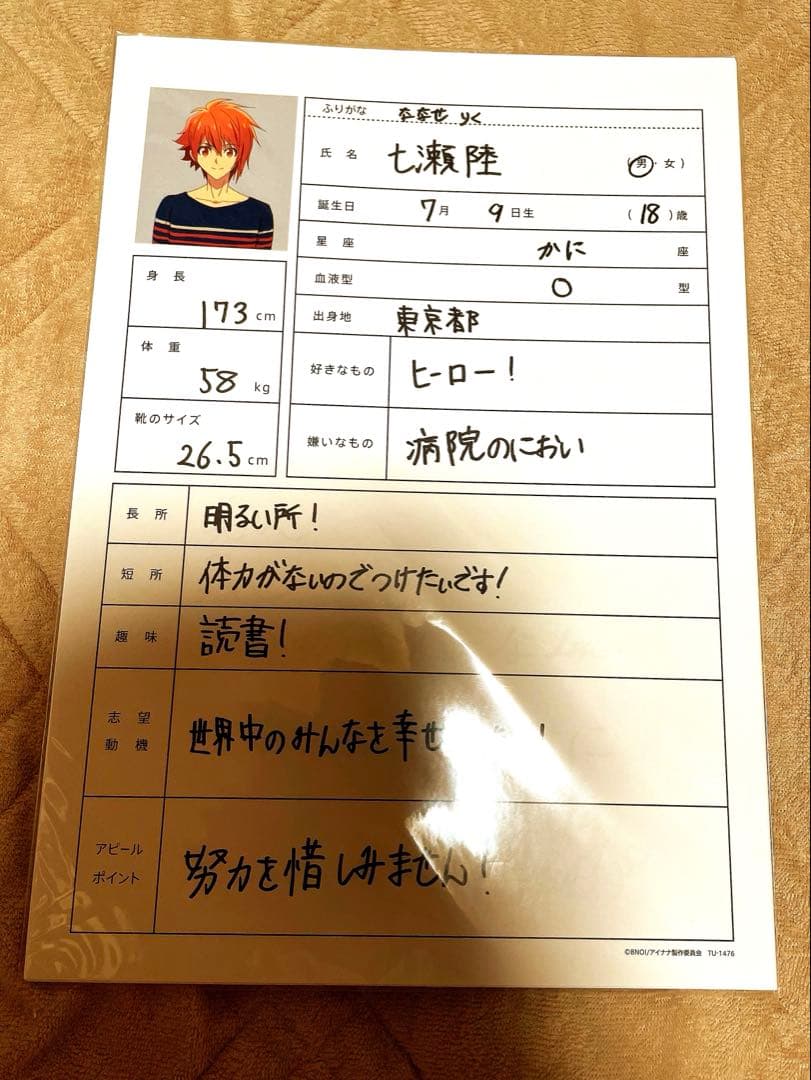 ふりがな ななせ りく
氏 名 七瀬陸 (男・女)
誕生日 7月 9日生 (18)歳
星 座 かに 座
血液型 O 型
出身地 東京都
好きなもの ヒーロー!
嫌いなもの 病院のにおい
身 長
173 cm
体 重
58 kg
靴のサイズ
26.5 cm
長 所 明るい所!
短 所 体力がないのでつけたいです!
趣 味 読書!
志 望
動 機
世界中のみんなを幸せ !
アピール
ポイント
努力を惜しみません!
©BNOI/アイナナ製作委員会 TU-1476